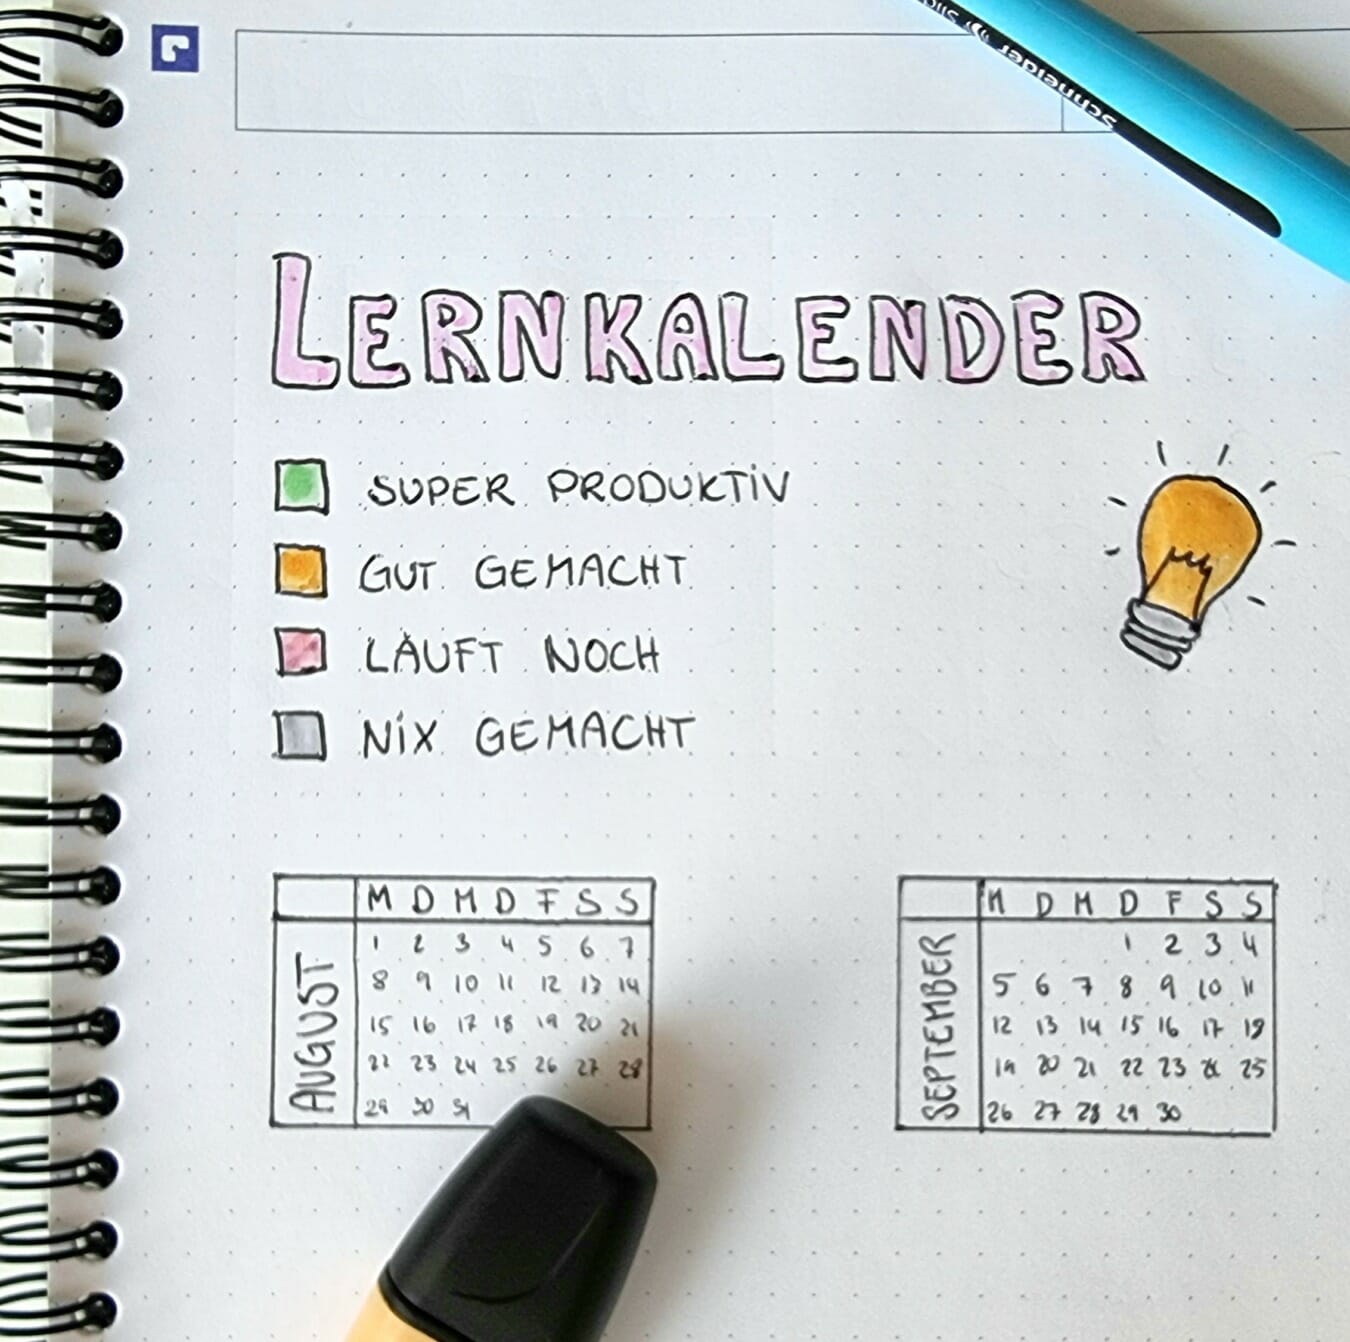 Schneider Slid
LERNKALENDER
SUPER PRODUKTiV
GUT GEMACHT
LÄUFT NOCH
NiX GEMACHT
M D M D F S S
AUGUST
1 2 3 4 5 6 7
8 9 10 11 12 13 14
15 16 17 18 19 20 21
22 23 24 25 26 27 28
29 30 31
M D M D F S S
SEPTEMBER
1 2 3 4
5 6 7 8 9 10 11
12 13 14 15 16 17 18
19 20 21 22 23 24 25
26 27 28 29 30